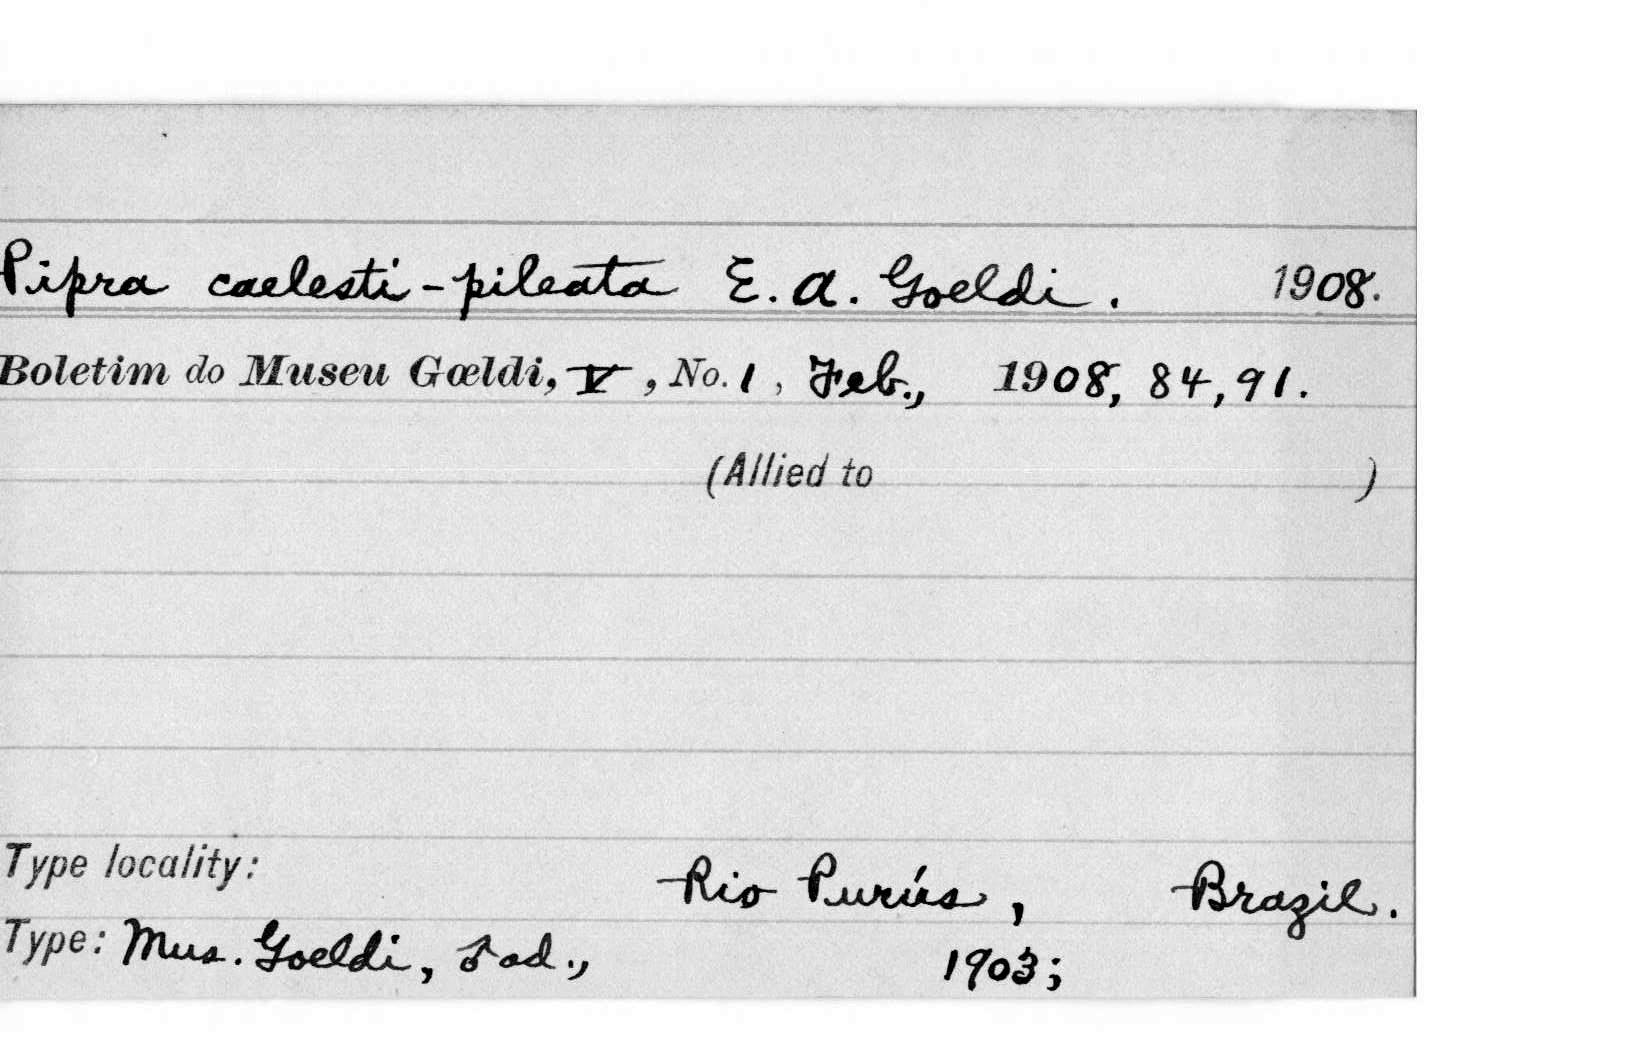 Pipra caelesti-pileata E. A. Goeldi. 1908.
Boletim do Museu Gœldi, V, No. 1, Feb., 1908, 84, 91.
(Allied to )
Type locality: Rio Purús, Brazil.
Type: Mus. Goeldi, ♂ ad., 1903;